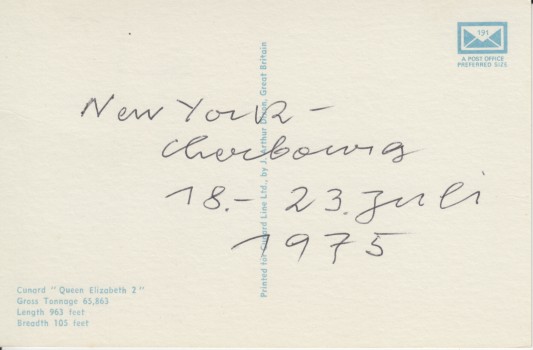 191
A POST OFFICE
PREFERRED SIZE
New York -
Cherbourg
18.- 23. Juli
1975
Printed for Cunard Line Ltd., by J. Arthur Dixon, Great Britain
Cunard "Queen Elizabeth 2"
Gross Tonnage 65,863
Length 963 feet
Breadth 105 feet